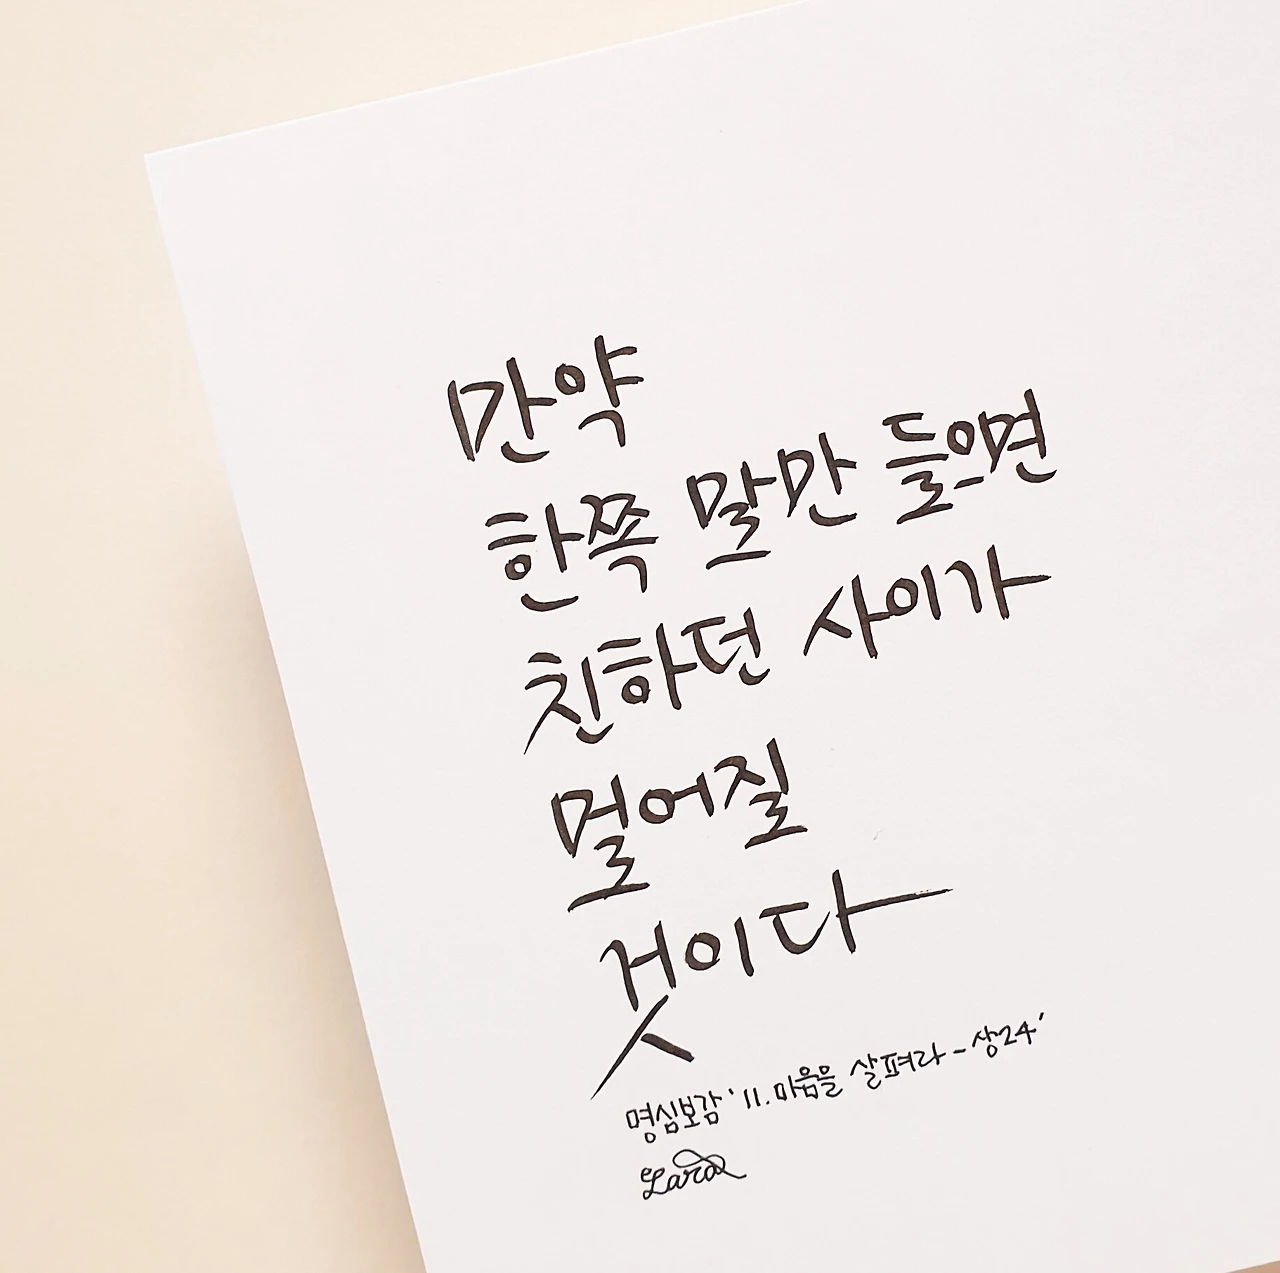 만약
한쪽 말만 들으면
친하던 사이가
멀어질
것이다
명심보감 '11. 마음을 살펴라 - 상24'
Lara